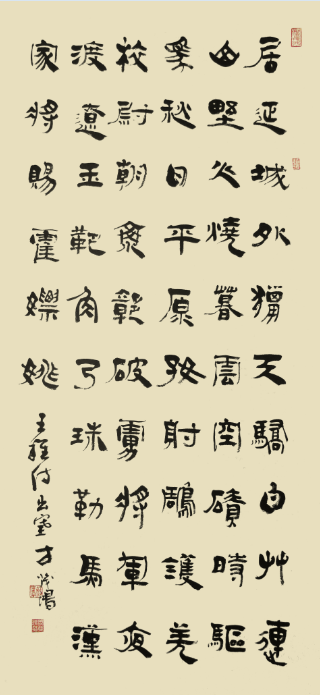 居延城外獵天驕白艸連
山野火燒暮雲空磧時驅
馬秋日平原好射鵰護羌
校尉朝乘障破虜將軍夜
渡遼玉靶角弓珠勒馬漢
家將賜霍嫖姚
王維詩出塞方